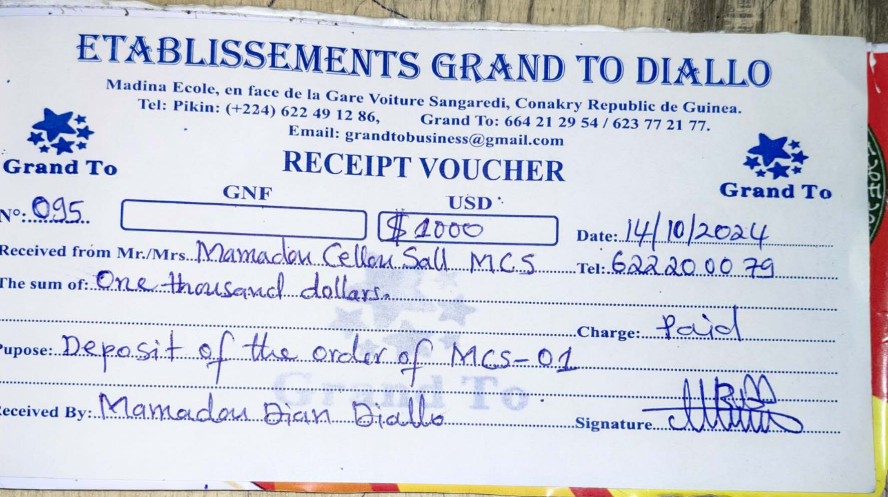 ETABLISSEMENTS GRAND TO DIALLO
Madina Ecole, en face de la Gare Voiture Sangaredi, Conakry Republic de Guinea.
Tel: Pikin: (+224) 622 49 12 86, Grand To: 664 21 29 54 / 623 77 21 77.
Email: grandtobusiness@gmail.com
Grand To
RECEIPT VOUCHER
Grand To
GNF USD
N°: 095 $ 1000 Date: 14/10/2024
Received from Mr./Mrs. Mamadou Cellou Sall MCS Tel: 622 20 00 79
The sum of: One thousand dollars.
Charge: Paid
Pupose: Deposit of the order of MCS-01
Grand To
Received By: Mamadou Dian Diallo Signature